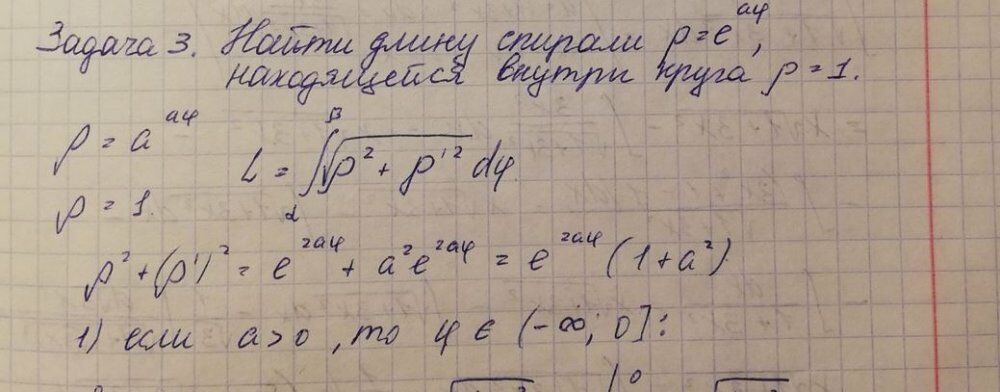 Задача 3. Найти длину спирали ρ=e^{aφ},
находящейся внутри круга ρ=1.
ρ = a^{aφ}
L = ∫_α^β √(ρ² + ρ'²) dφ
ρ = 1.
ρ² + (ρ')² = e^{2aφ} + a²e^{2aφ} = e^{2aφ} (1+a²)
1) если a>0, то φ ∈ (-∞; 0]: